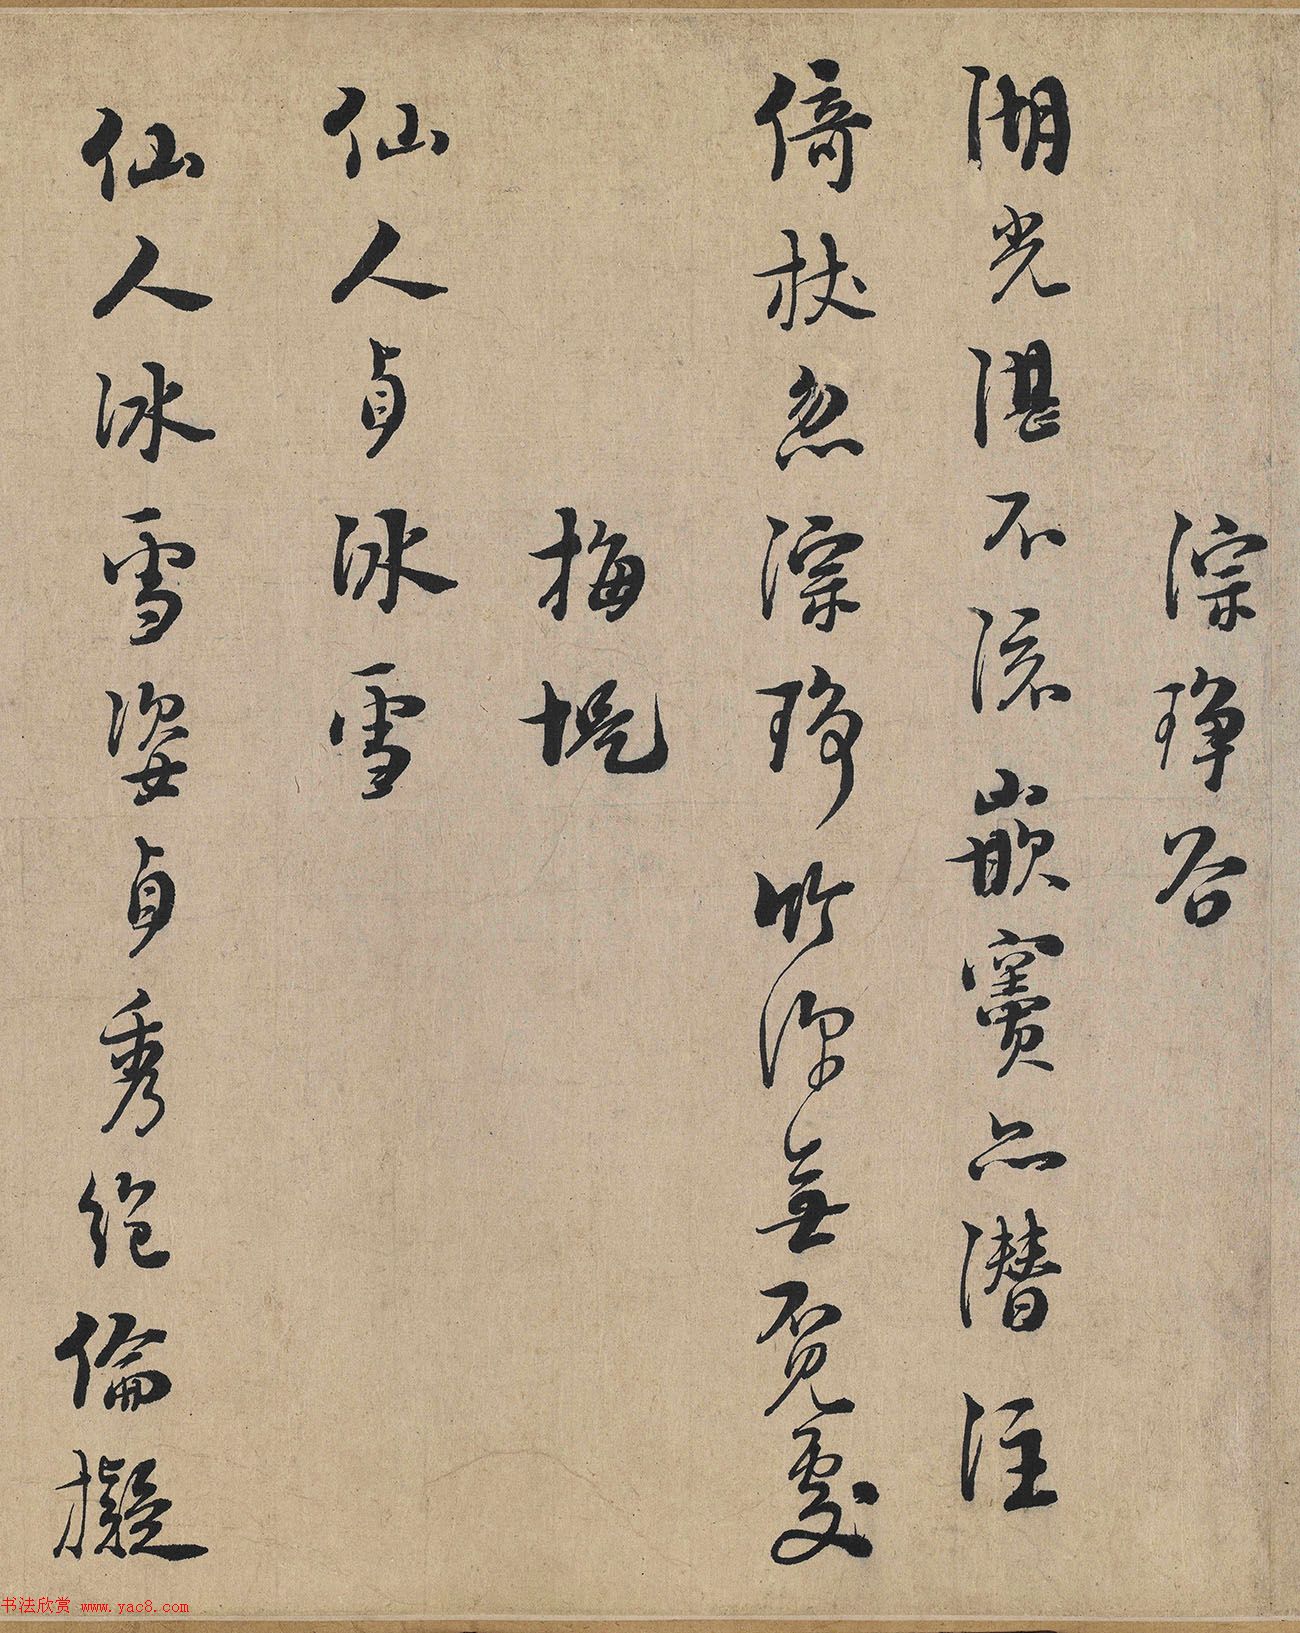 淙琤谷
湖光湛不流嵌竇亦潛注
倚杖忽淙琤竹深無覓處
梅堤
仙人貞冰雪
仙人冰雪姿貞秀絕倫擬
书法欣赏 www.yac8.com